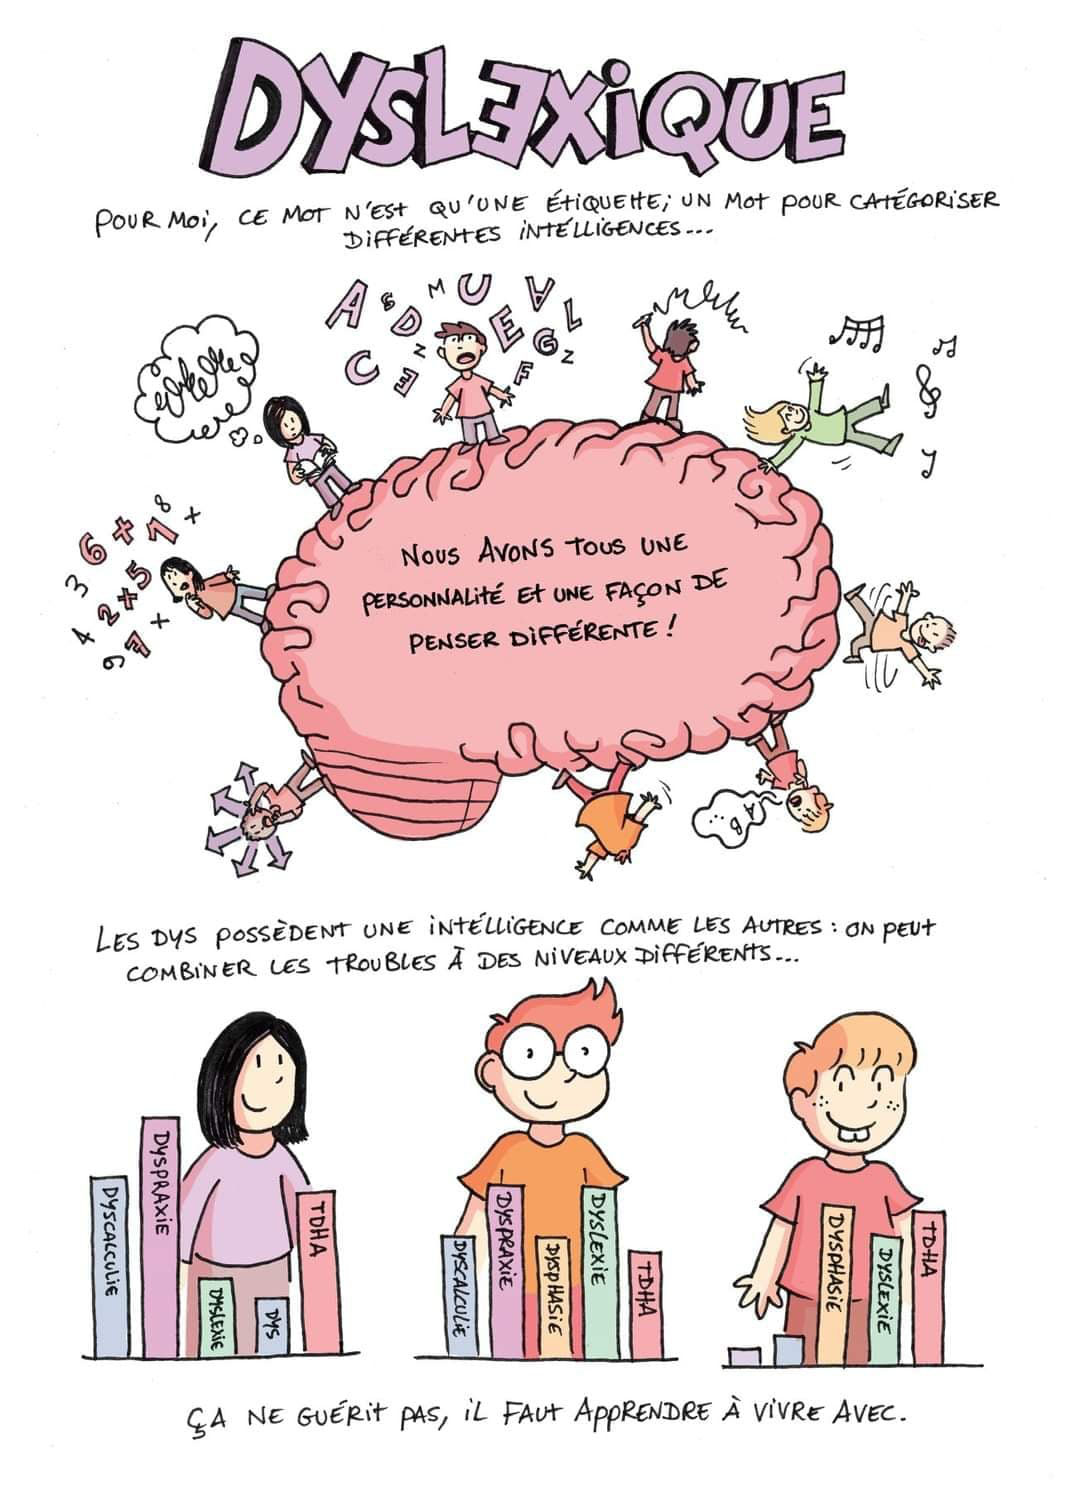 DYSLEXIQUE
POUR MOI, CE MOT N'EST QU'UNE ÉTIQUETTE; UN MOT POUR CATÉGORISER
DIFFÉRENTES INTÉLLIGENCES...
A S D M U E A L
C E N F G Z
3 6 + 1 8 +
4 2 + 5
9 7 +
NOUS AVONS TOUS UNE
PERSONNALITÉ ET UNE FAÇON DE
PENSER DIFFÉRENTE !
A B
LES DYS POSSÈDENT UNE INTÉLLIGENCE COMME LES AUTRES : ON PEUT
COMBINER LES TROUBLES À DES NIVEAUX DIFFÉRENTS...
DYSCALCULIE
DYSPRAXIE
DYSLEXIE
DYS
TDHA
DYSCALCULIE
DYSPRAXIE
DYSPHASIE
DYSLEXIE
TDHA
DYSPHASIE
DYSLEXIE
TDHA
ÇA NE GUÉRIT PAS, IL FAUT APPRENDRE À VIVRE AVEC.